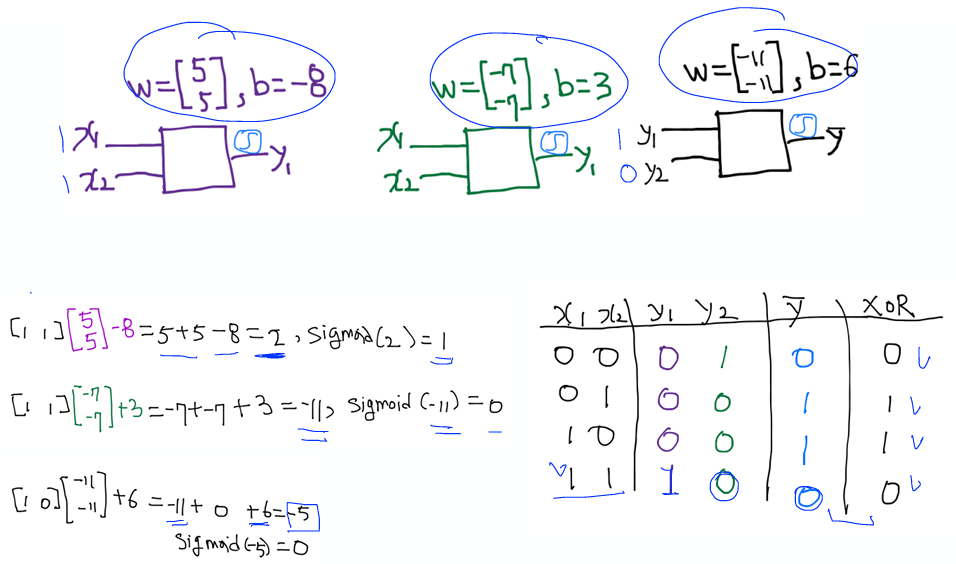 w=[5 5], b=-8
w=[-7 -7], b=3
w=[-11 -11], b=6
1 x1
1 x2
S
y1
x1
x2
S
y1
1 y1
0 y2
S
y̅
[1 1][5 5]-8=5+5-8=2, Sigmoid(2)=1
[1 1][-7 -7]+3=-7+-7+3=-11, Sigmoid(-11)=0
[1 0][-11 -11]+6=-11+0+6=-5
Sigmoid(-5)=0
x1 x2 y1 y2 y̅ XOR
0 0 0 1 0 0
0 1 0 0 1 1
1 0 0 0 1 1
1 1 1 0 0 0